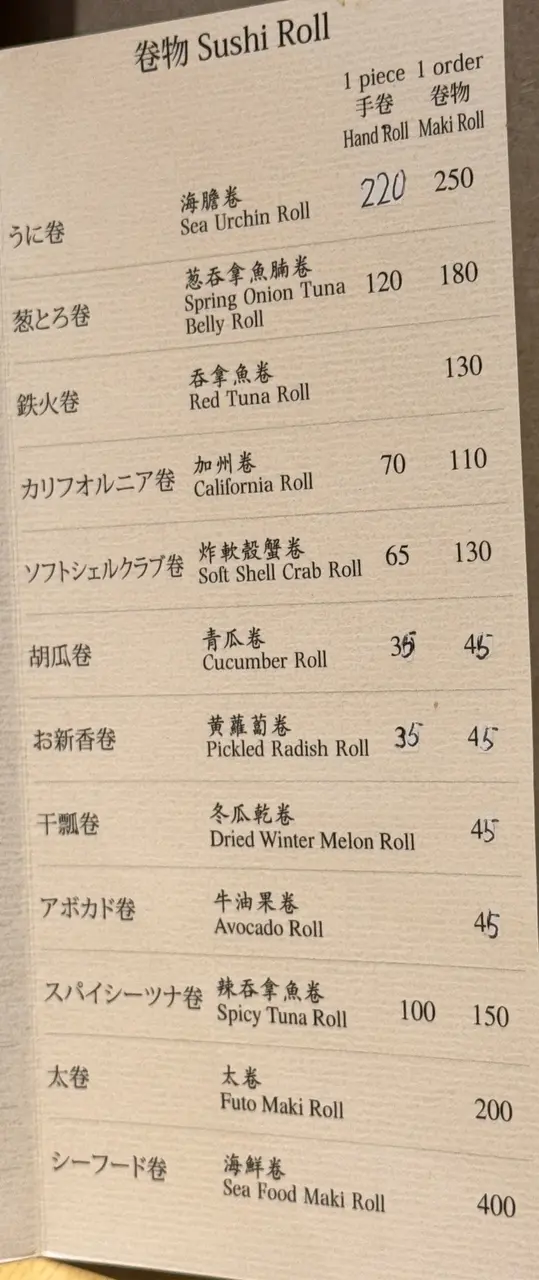 卷物 Sushi Roll
1 piece 1 order
手卷 卷物
Hand Roll Maki Roll
うに卷 海膽卷 220 250
Sea Urchin Roll
葱とろ卷 葱吞拿魚腩卷 120 180
Spring Onion Tuna
Belly Roll
鉄火卷 吞拿魚卷 130
Red Tuna Roll
カリフオルニア卷 加州卷 70 110
California Roll
ソフトシェルクラブ卷 炸軟殼蟹卷 65 130
Soft Shell Crab Roll
胡瓜卷 青瓜卷 35 45
Cucumber Roll
お新香卷 黄蘿蔔卷 35 45
Pickled Radish Roll
干瓢卷 冬瓜乾卷 45
Dried Winter Melon Roll
アボカド卷 牛油果卷 45
Avocado Roll
スパイシーツナ卷 辣吞拿魚卷 100 150
Spicy Tuna Roll
太卷 太卷 200
Futo Maki Roll
シーフード卷 海鮮卷 400
Sea Food Maki Roll